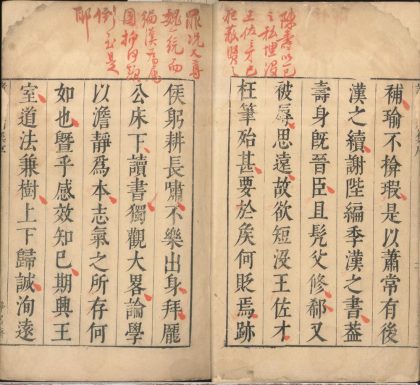 陳壽以已
之私埋沒
王佐才已
補瑜不揜瑕是以蕭常有後
漢之續謝陛編季漢之書葢
壽身既晉臣且髡父修郗又
被辱思遠故欲短沒王佐才
枉筆殆甚要於矦何貶焉跡
魏統而
倒至是
耶
侯躬耕長嘯不樂出身拜龎
公床下讀書獨觀大畧論學
以澹靜為本志氣之所存何
如也曁乎感效知己期興王
室道法兼樹上下歸誠洵遠